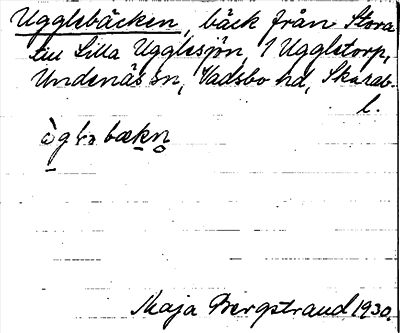 Ugglebäcken, bäck från Stora
till Lilla Ugglesjön, 1 Uggletorp,
Undenäs sn, Vadsbo hd, Skarab.
l.
bækn̥
Maja Bergstrand 1930.